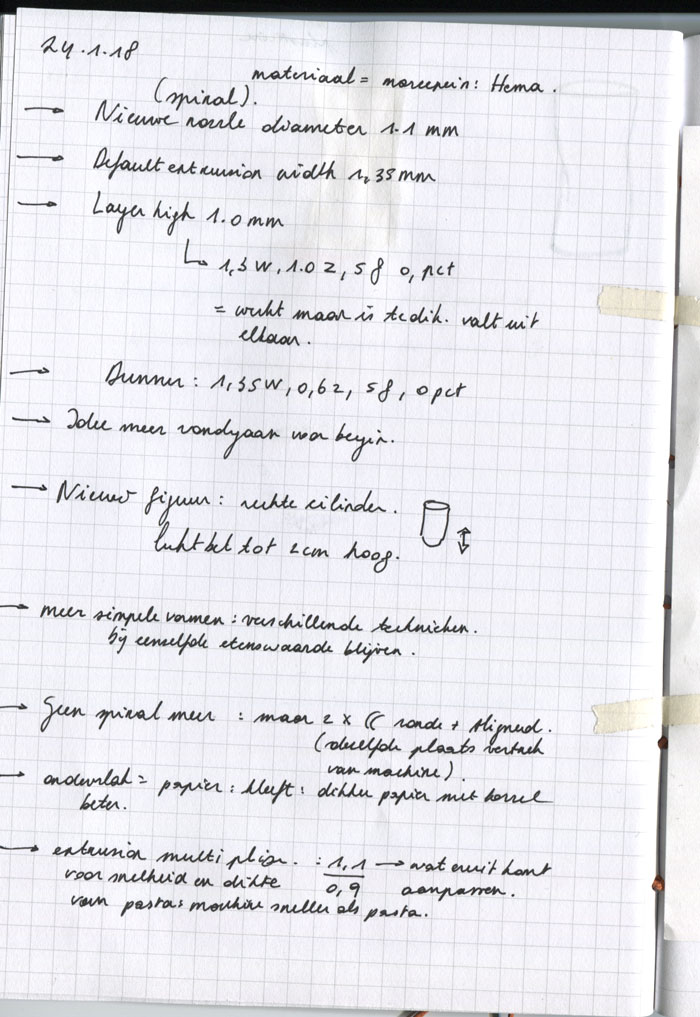 24.1.18
materiaal = marsepein: Hema.
(spiral).
→ Nieuwe nozzle diameter 1.1 mm
→ Default extrusion width 1,35 mm
→ Layer high 1.0 mm
↳ 1,3 W, 1.0 z, 5 f 0, pct
= werkt maar is te dik. valt uit
elkaar.
→ Dunner: 1,35 W, 0,6 z, 5 f, 0 pct
→ Idee meer rondjes aan begin.
→ Nieuw figuur: rechte cilinder.
luchtbel tot 2 cm hoog.
→ meer simpele vormen: verschillende technieken.
bij eenzelfde etenswaarde blijven.
→ Geen spiral meer : maar 2 x ronde + Alignend.
(dezelfde plaats vertrek
van machine).
→ ondervlak = papier: kleeft: dikker papier met korrel
beter.
→ extrusion multiplier. : 1,1 → wat eruit komt
voor snelheid en dikte 0,9 aanpassen.
van pasta: machine sneller als pasta.